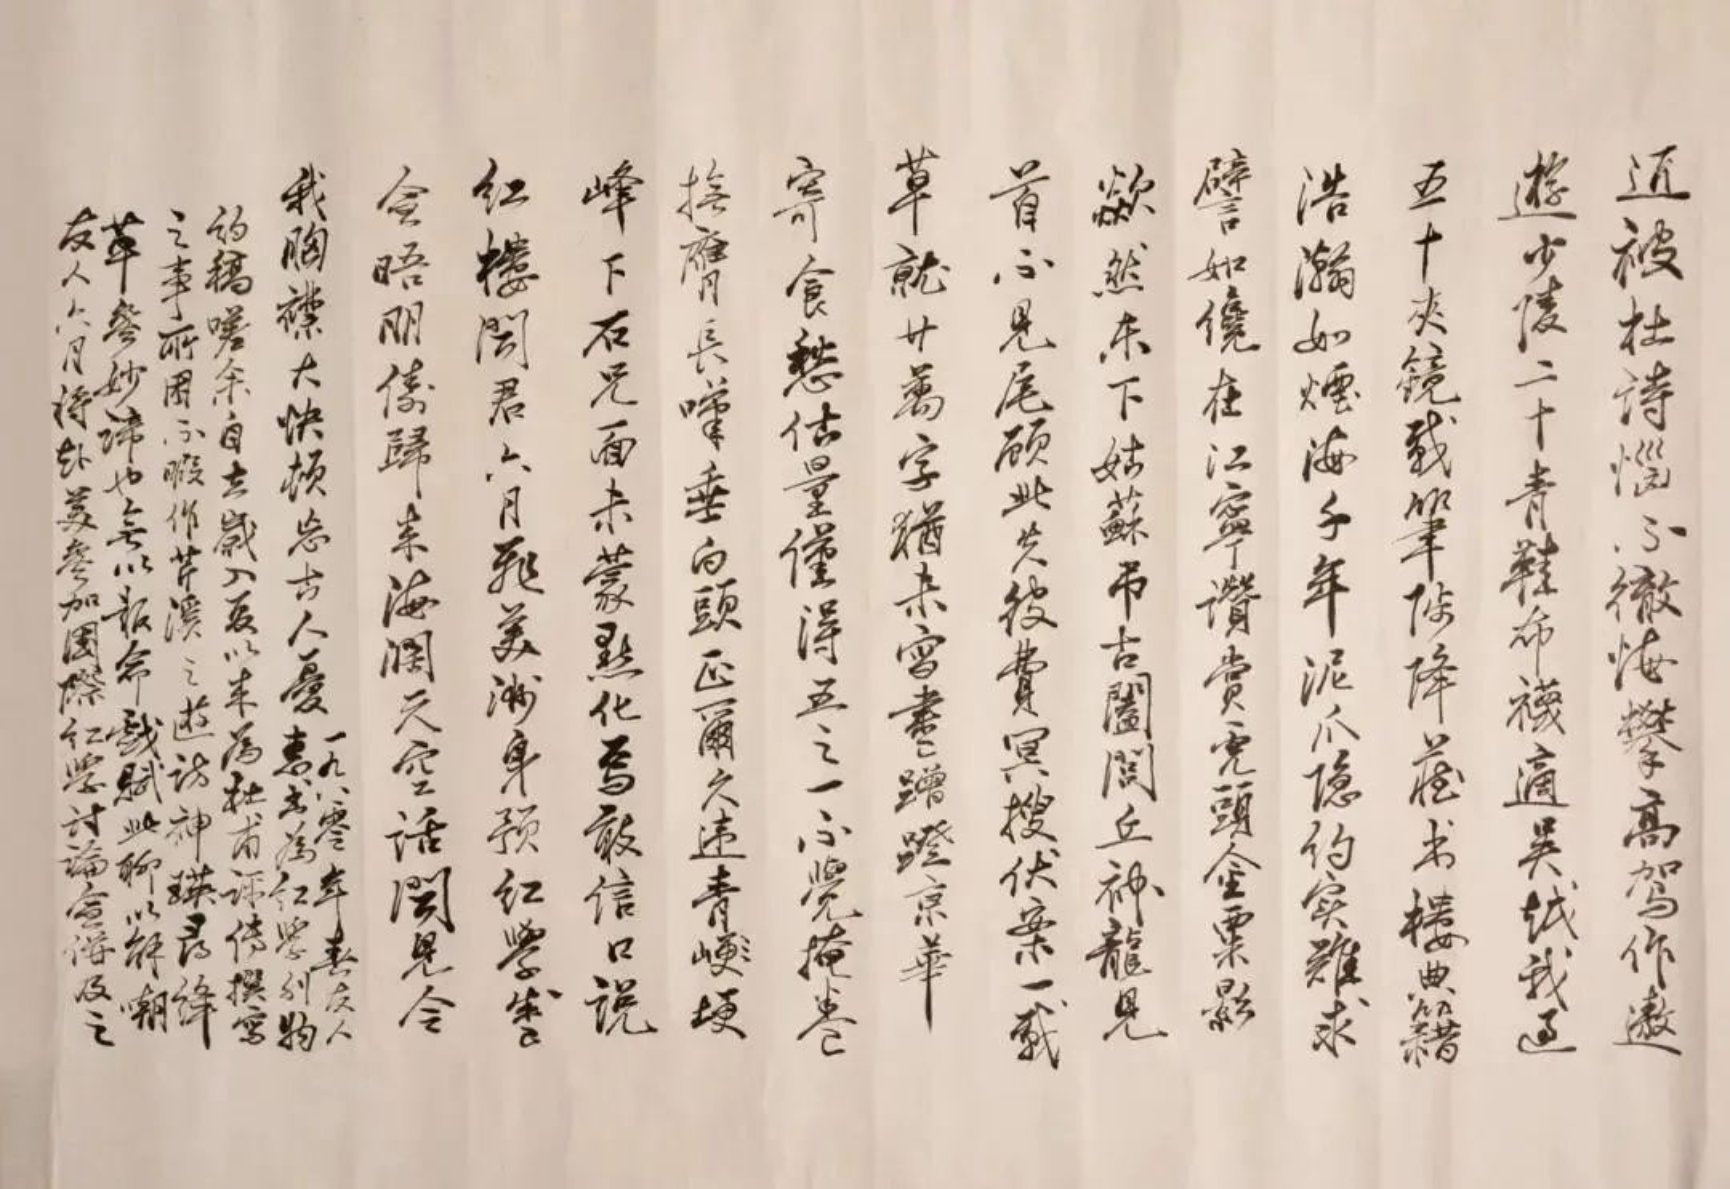 近被杜詩惱不徹悔攀高駕作遨
遊少陵二十青鞋布襪適吳越我過
五十夾鏡載筆陟降藏书樓典籍
浩瀚如煙海千年泥爪隐约实難求
譬如僥在江寧讚賞虎頭金粟影
欻然未下姑蘇吊古闔閭丘神龍見
首不見尾顾此失彼費冥搜伏案一載
草就廿萬字猶未寫盡蹭蹬京華
寄食愁估量僅得五之一不覺掩卷
撫膺長嘆垂白頭正爾久违青埂
峰下石兄面未蒙點化焉敢信口説
红樓閣君六月飛美洲身預红學盛
会晤朋儔歸来海阔天空話閒見令
我胸襟大快頓忘古人憂 一九八零年春友人
惠书為红學刊物
约稿嗟余自去歲入夏以来為杜甫评傳撰寫
之事所困不暇作芹溪之遊訪神瑛尋绛
草參妙諦也無以報命戲賦此聊以解嘲
友人六月將赴美參加國際红學討論会併及之